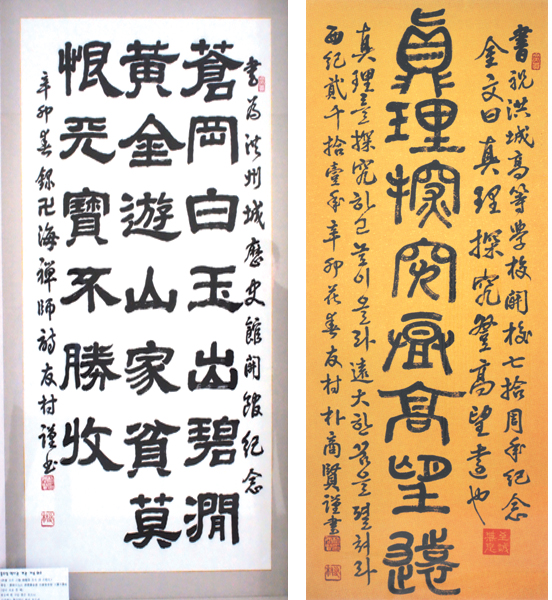 書為洪州城歷史館開舘紀念
蒼岡白玉出碧澗
黃金遊山家貧莫
恨天寶不勝收
辛卯春錄卍海禪師詩友村謹書
書祝洪城高等學校開校七拾周年紀念
金文曰真理探究登高望遠也
眞理探究登高望遠
真理를探究하고높이올라遠大한꿈을펼쳐라
西紀貳千拾壹年辛卯花春友村朴商賢謹書